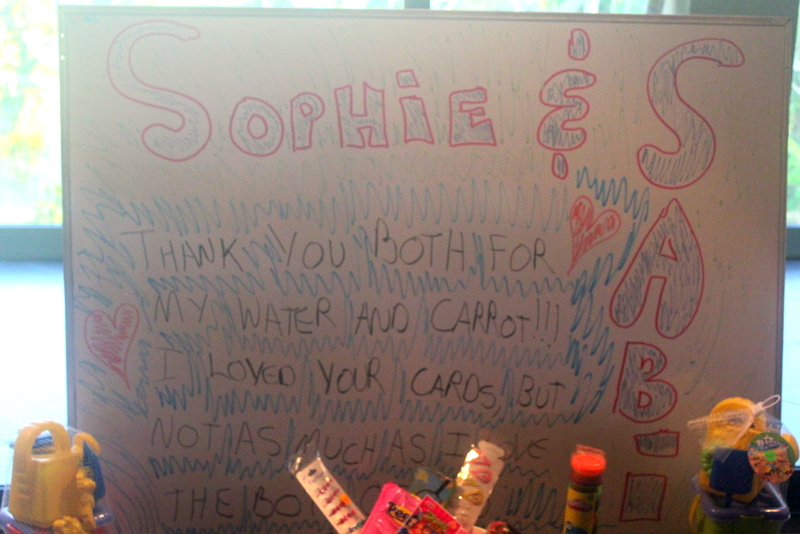 SOPHIE & SAB
THANK YOU BOTH FOR
MY WATER AND CARROT!!!
I LOVED YOUR CARDS, BUT
NOT AS MUCH AS I LOVE
THE